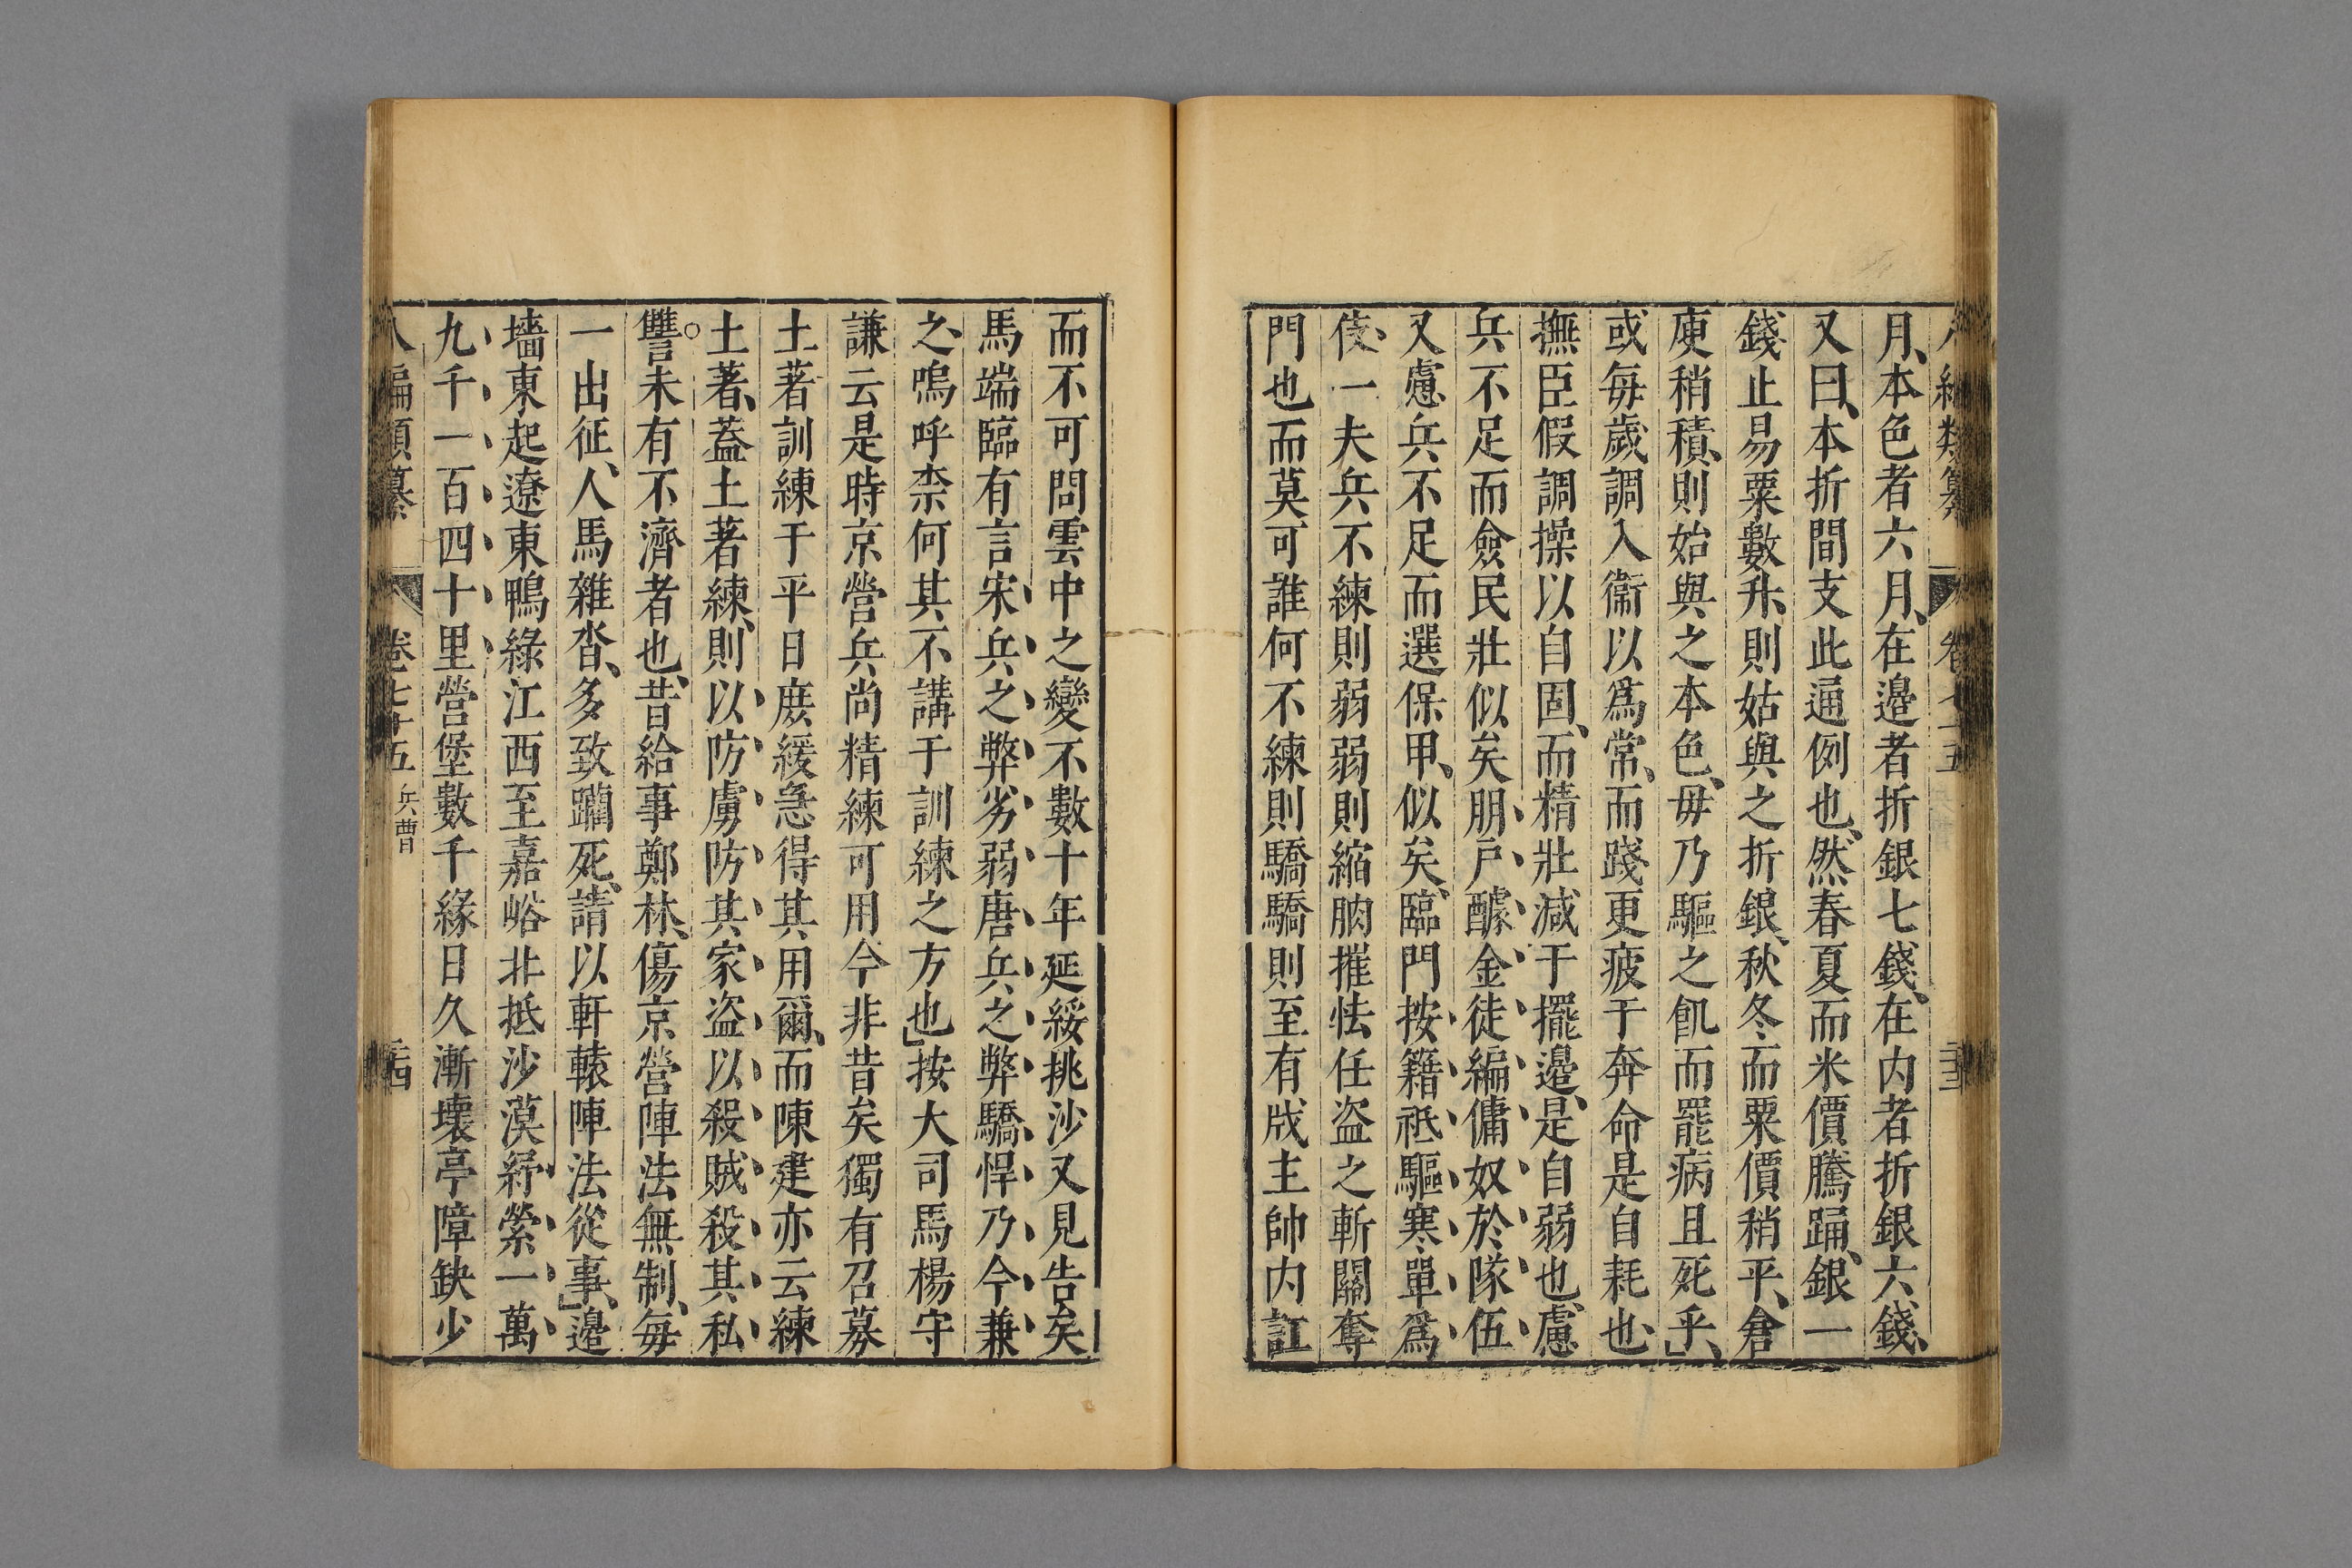 八編類纂 卷七十五 二十三
月、本色者六月、在邉者折銀七錢、在内者折銀六錢、
又曰、本折間支此通例也、然春夏而米價騰踊、銀一
錢止易粟數升、則姑與之折銀、秋冬而粟價稍平、倉
庾稍積、則始與之本色、毋乃驅之飢而罷病且死乎、」
或毎歲調入衞以爲常、而踐更疲于奔命是自耗也、
撫臣假調操以自固、而精壯減于擺邉、是自弱也、慮
兵不足而僉民壯似矣朋戸醵金徒編傭奴於隊伍
又慮兵不足而選保甲、似矣、臨門按籍祗驅寒單爲
伎、一夫兵不練則弱弱則縮朒摧怯任盗之斬關奪
門也而莫可誰何不練則驕驕則至有戕主帥内訌
而不可問雲中之變不數十年延綏挑沙又見告矣
馬端臨有言宋兵之弊劣弱唐兵之弊驕悍乃今兼
之、嗚呼柰何其不講于訓練之方也」按大司馬楊守
謙云是時京營兵尚精練可用今非昔矣獨有召募
土著訓練于平日庶緩急得其用爾、而陳建亦云練
土著、蓋土著練、則以防虜防其家盗以殺賊殺其私
讐○未有不濟者也、昔給事鄭林、傷京營陣法無制、毎
一出征、人馬雜沓、多致躪死、請以軒轅陣法從事、」邉
墻東起遼東鴨綠江西至嘉峪北抵沙漠紆縈一萬
九千一百四十里營堡數千緣日久漸壊亭障缺少
八編類纂 卷七十五 兵曹 二十四